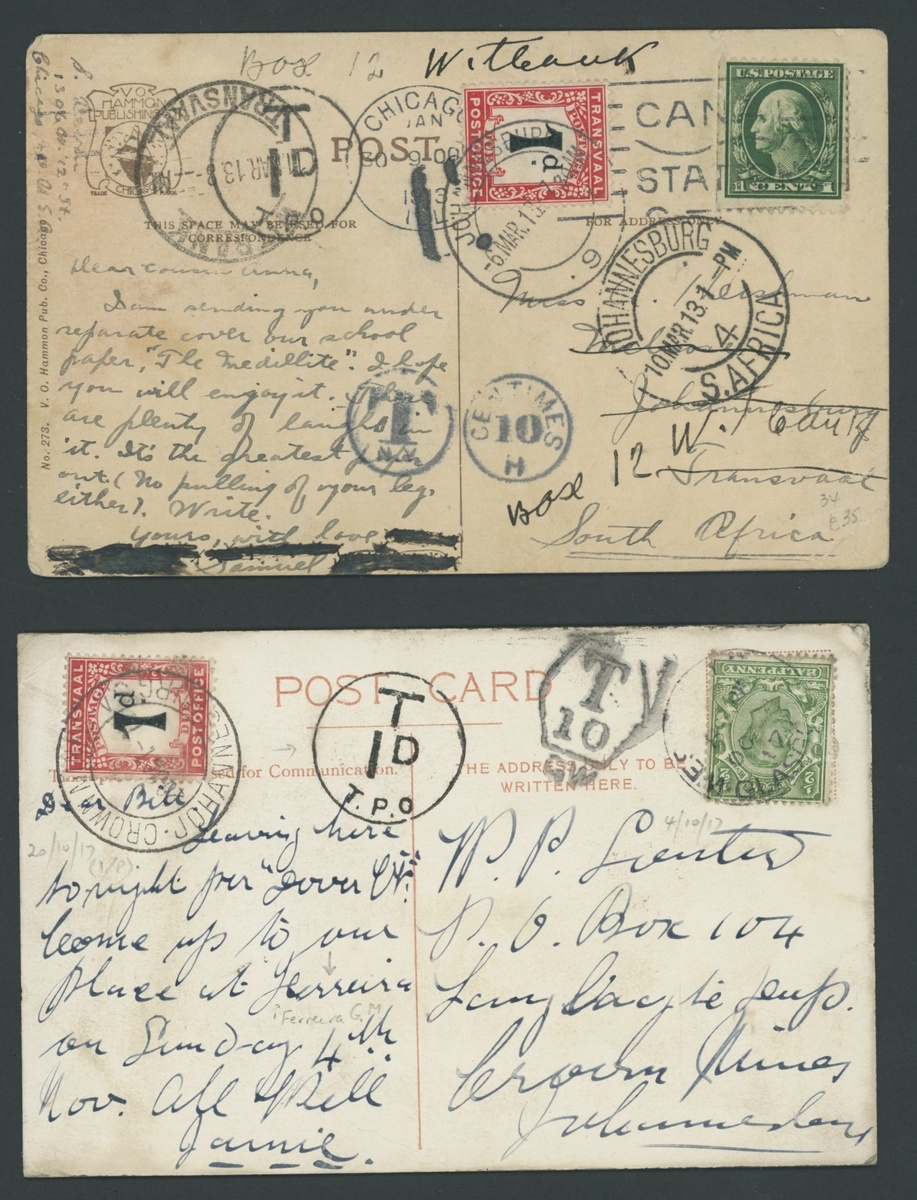 Box 12 Witbank
V.O.
HAMMON
PUBLISHING
CHICAGO
TRADE
No. 273. V. O. Hammon Pub. Co., Chicago
TRANSVAAL
11 MAR 13
T
1D
T.P.O
POST
CHICAGO
JAN
30
9 00
1913
ILL
TRANSVAAL
POSTAGE DUE
1d.
POST OFFICE
6 MAR 13
9
U.S. POSTAGE
1 CENT 1
CAN
STA
THIS SPACE MAY BE USED FOR
CORRESPONDENCE
FOR ADDRESS ONLY
JOHANNESBURG
10 MAR 13. 1-PM
4
S. AFRICA
Dear Cousin
I am sending you under
separate cover our school
paper, "The Medillite". I hope
you will enjoy it. There
are plenty of laughs in
it. It's the greatest
out. (No pulling of your leg,
either). Write.
Yours, with love,
Samuel
T
N.Y.
CENTIMES
10
H
Miss
Johannesburg
Box 12 W.
Transvaal
South Africa
34
e35
TRANSVAAL
POSTAGE DUE
1d
POST OFFICE
POST CARD
T
1D
T.P.O
T
10
GW
HALFPENNY
GLASGOW
OC 4
17
sed for Communication.
THE ADDRESS ONLY TO BE
WRITTEN HERE.
4/10/17
20/10/17
Dear Bill
Leaving here
tonight per "Dover C."
Come up to our
place at Ferreira
? Ferreira G.M.
on Sunday 4th
Nov. All Well
Jamie.
P. O. Box 104
Langlaagte
Crown Mines
Johannesburg